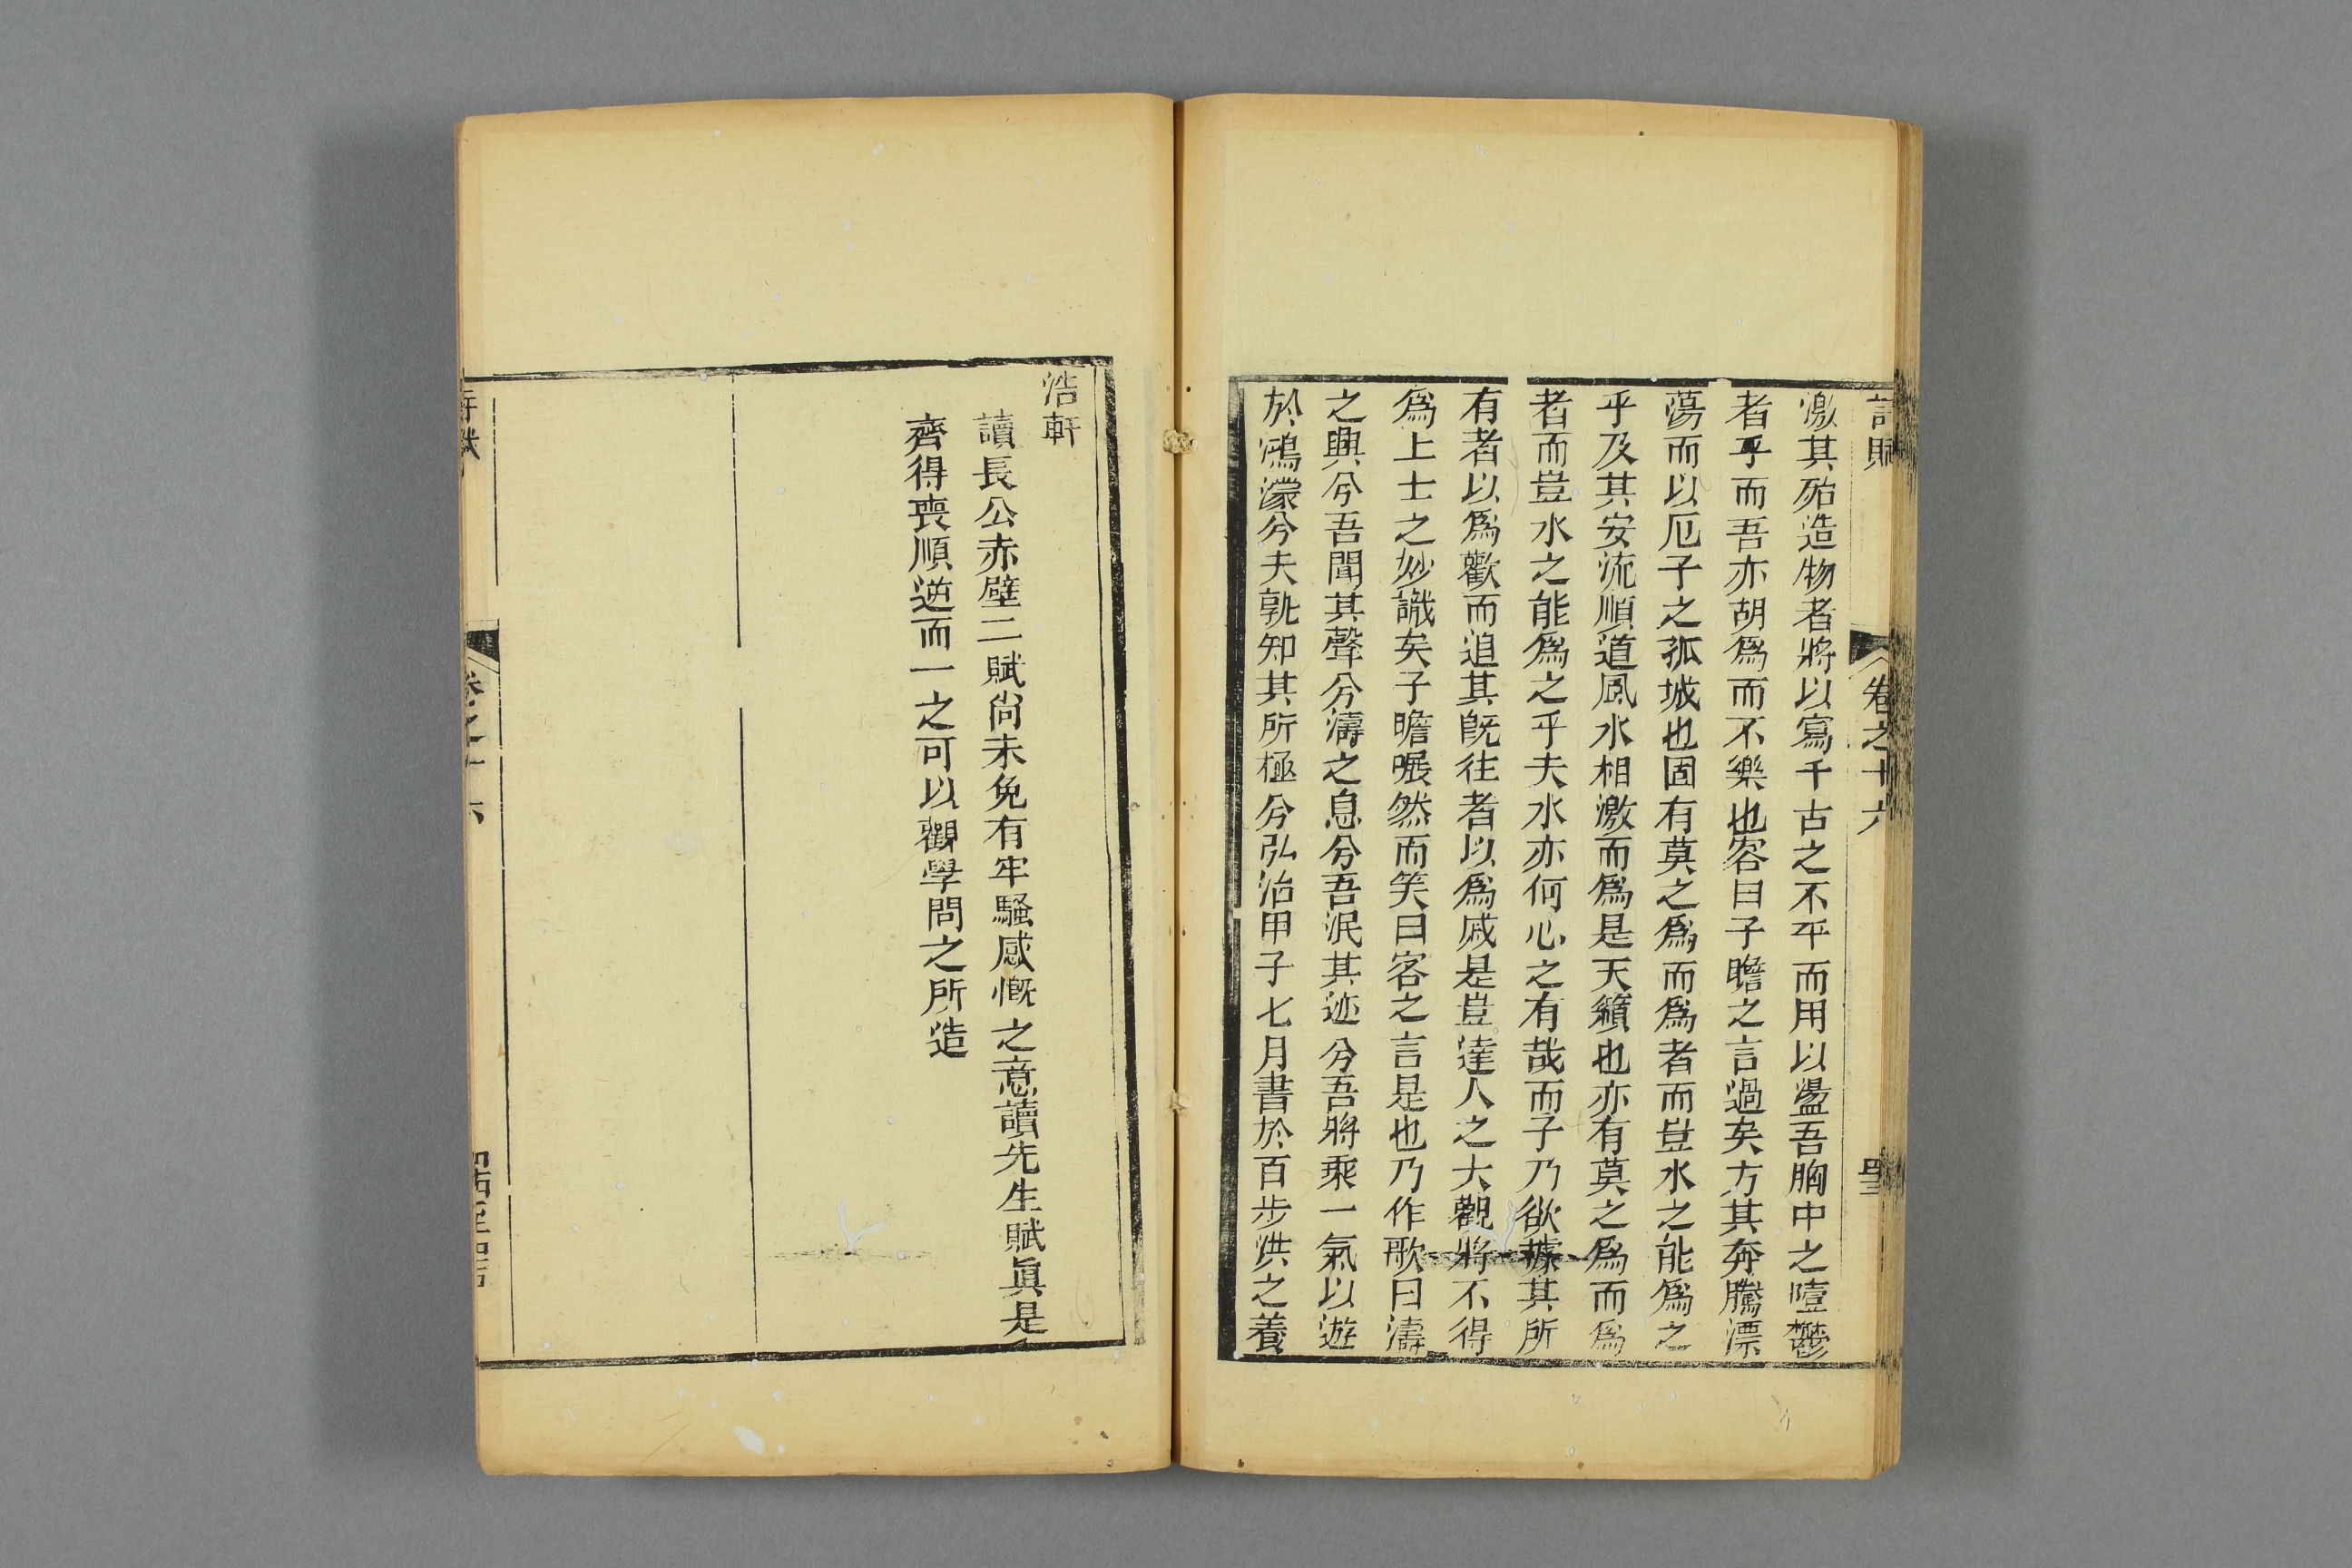 詩賦 卷之十六
激其殆造物者將以寫千古之不平而用以盪吾胸中之噎鬱
者乎而吾亦胡爲而不樂也客曰子瞻之言過矣方其奔騰漂
蕩而以厄子之孤城也固有莫之爲而爲者而豈水之能爲之
乎及其安流順道風水相激而爲是天籟也亦有莫之爲而爲
者而豈水之能爲之乎夫水亦何心之有哉而子乃欲據其所
有者以爲歡而追其旣往者以爲戚是豈達人之大觀將不得
爲上士之妙識矣子瞻囅然而笑曰客之言是也乃作歌曰濤
之興兮吾聞其聲兮濤之息兮吾泯其迹兮吾將乘一氣以遊
於鴻濛兮夫孰知其所極兮弘治甲子七月書於百步洪之養
浩軒
讀長公赤壁二賦尙未免有牢騷感慨之意讀先生賦眞是
齊得喪順逆而一之可以觀學問之所造